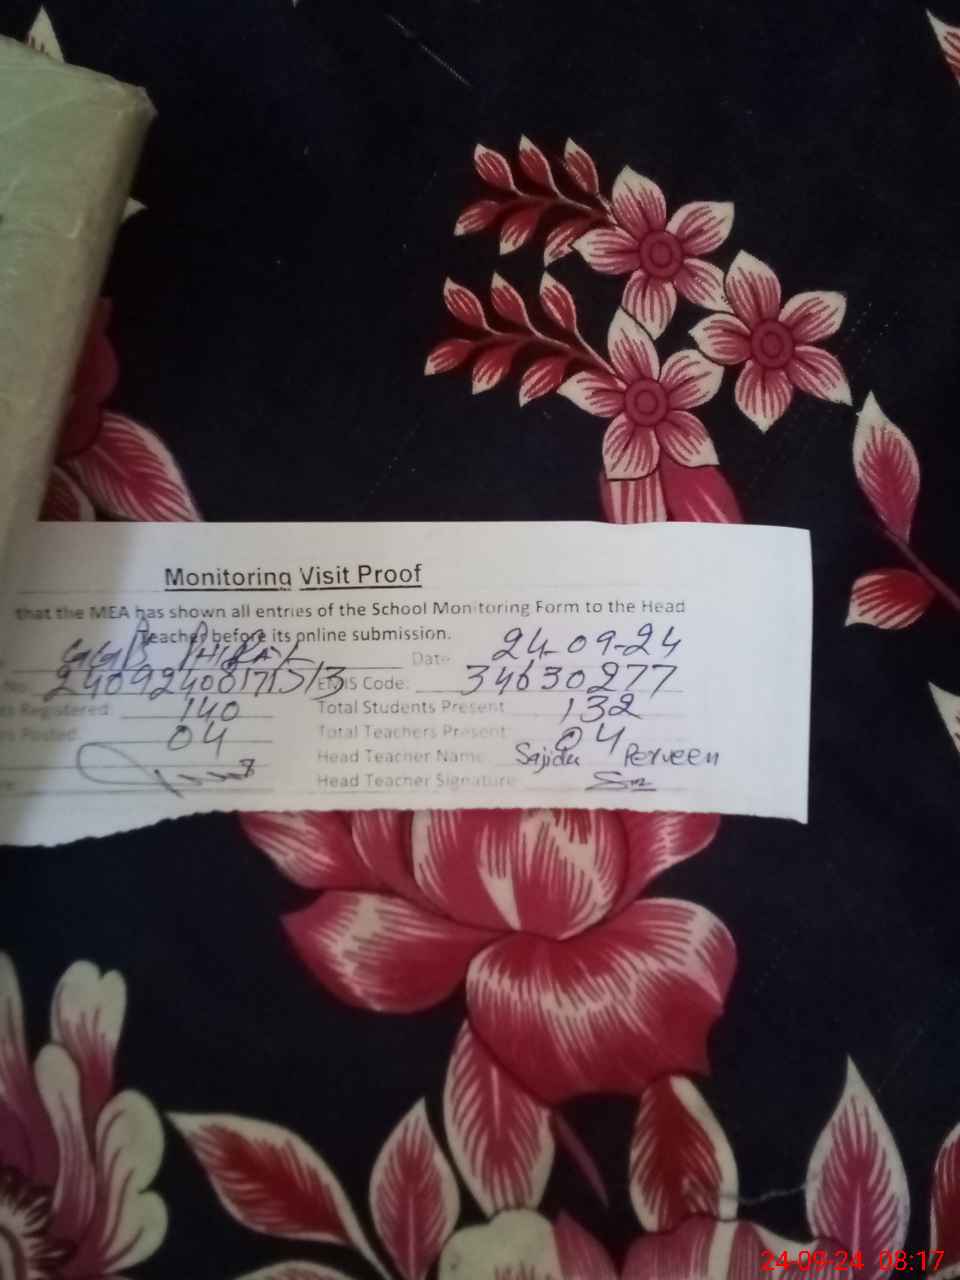 Monitoring Visit Proof
that the MEA has shown all entries of the School Monitoring Form to the Head
Teacher before its online submission.
GGPS Date 24-09-24
No. EMIS Code: 34630277
ts Registered: 140 Total Students Present 132
rs Posted: 04 Total Teachers Present: 04
Head Teacher Name Sajida Perveen
Head Teacher Signature:
24-09-24 08:17